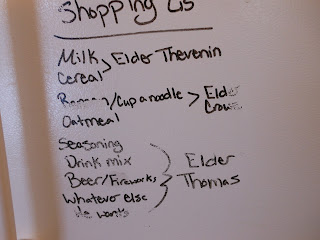 Shopping Lis
Milk > Elder Thevenin
Cereal
Ramen/Cup a noodle > Elder
Oatmeal
Seasoning
Drink mix
Beer/Fireworks } Elder Thomas
Whatever else
he wants